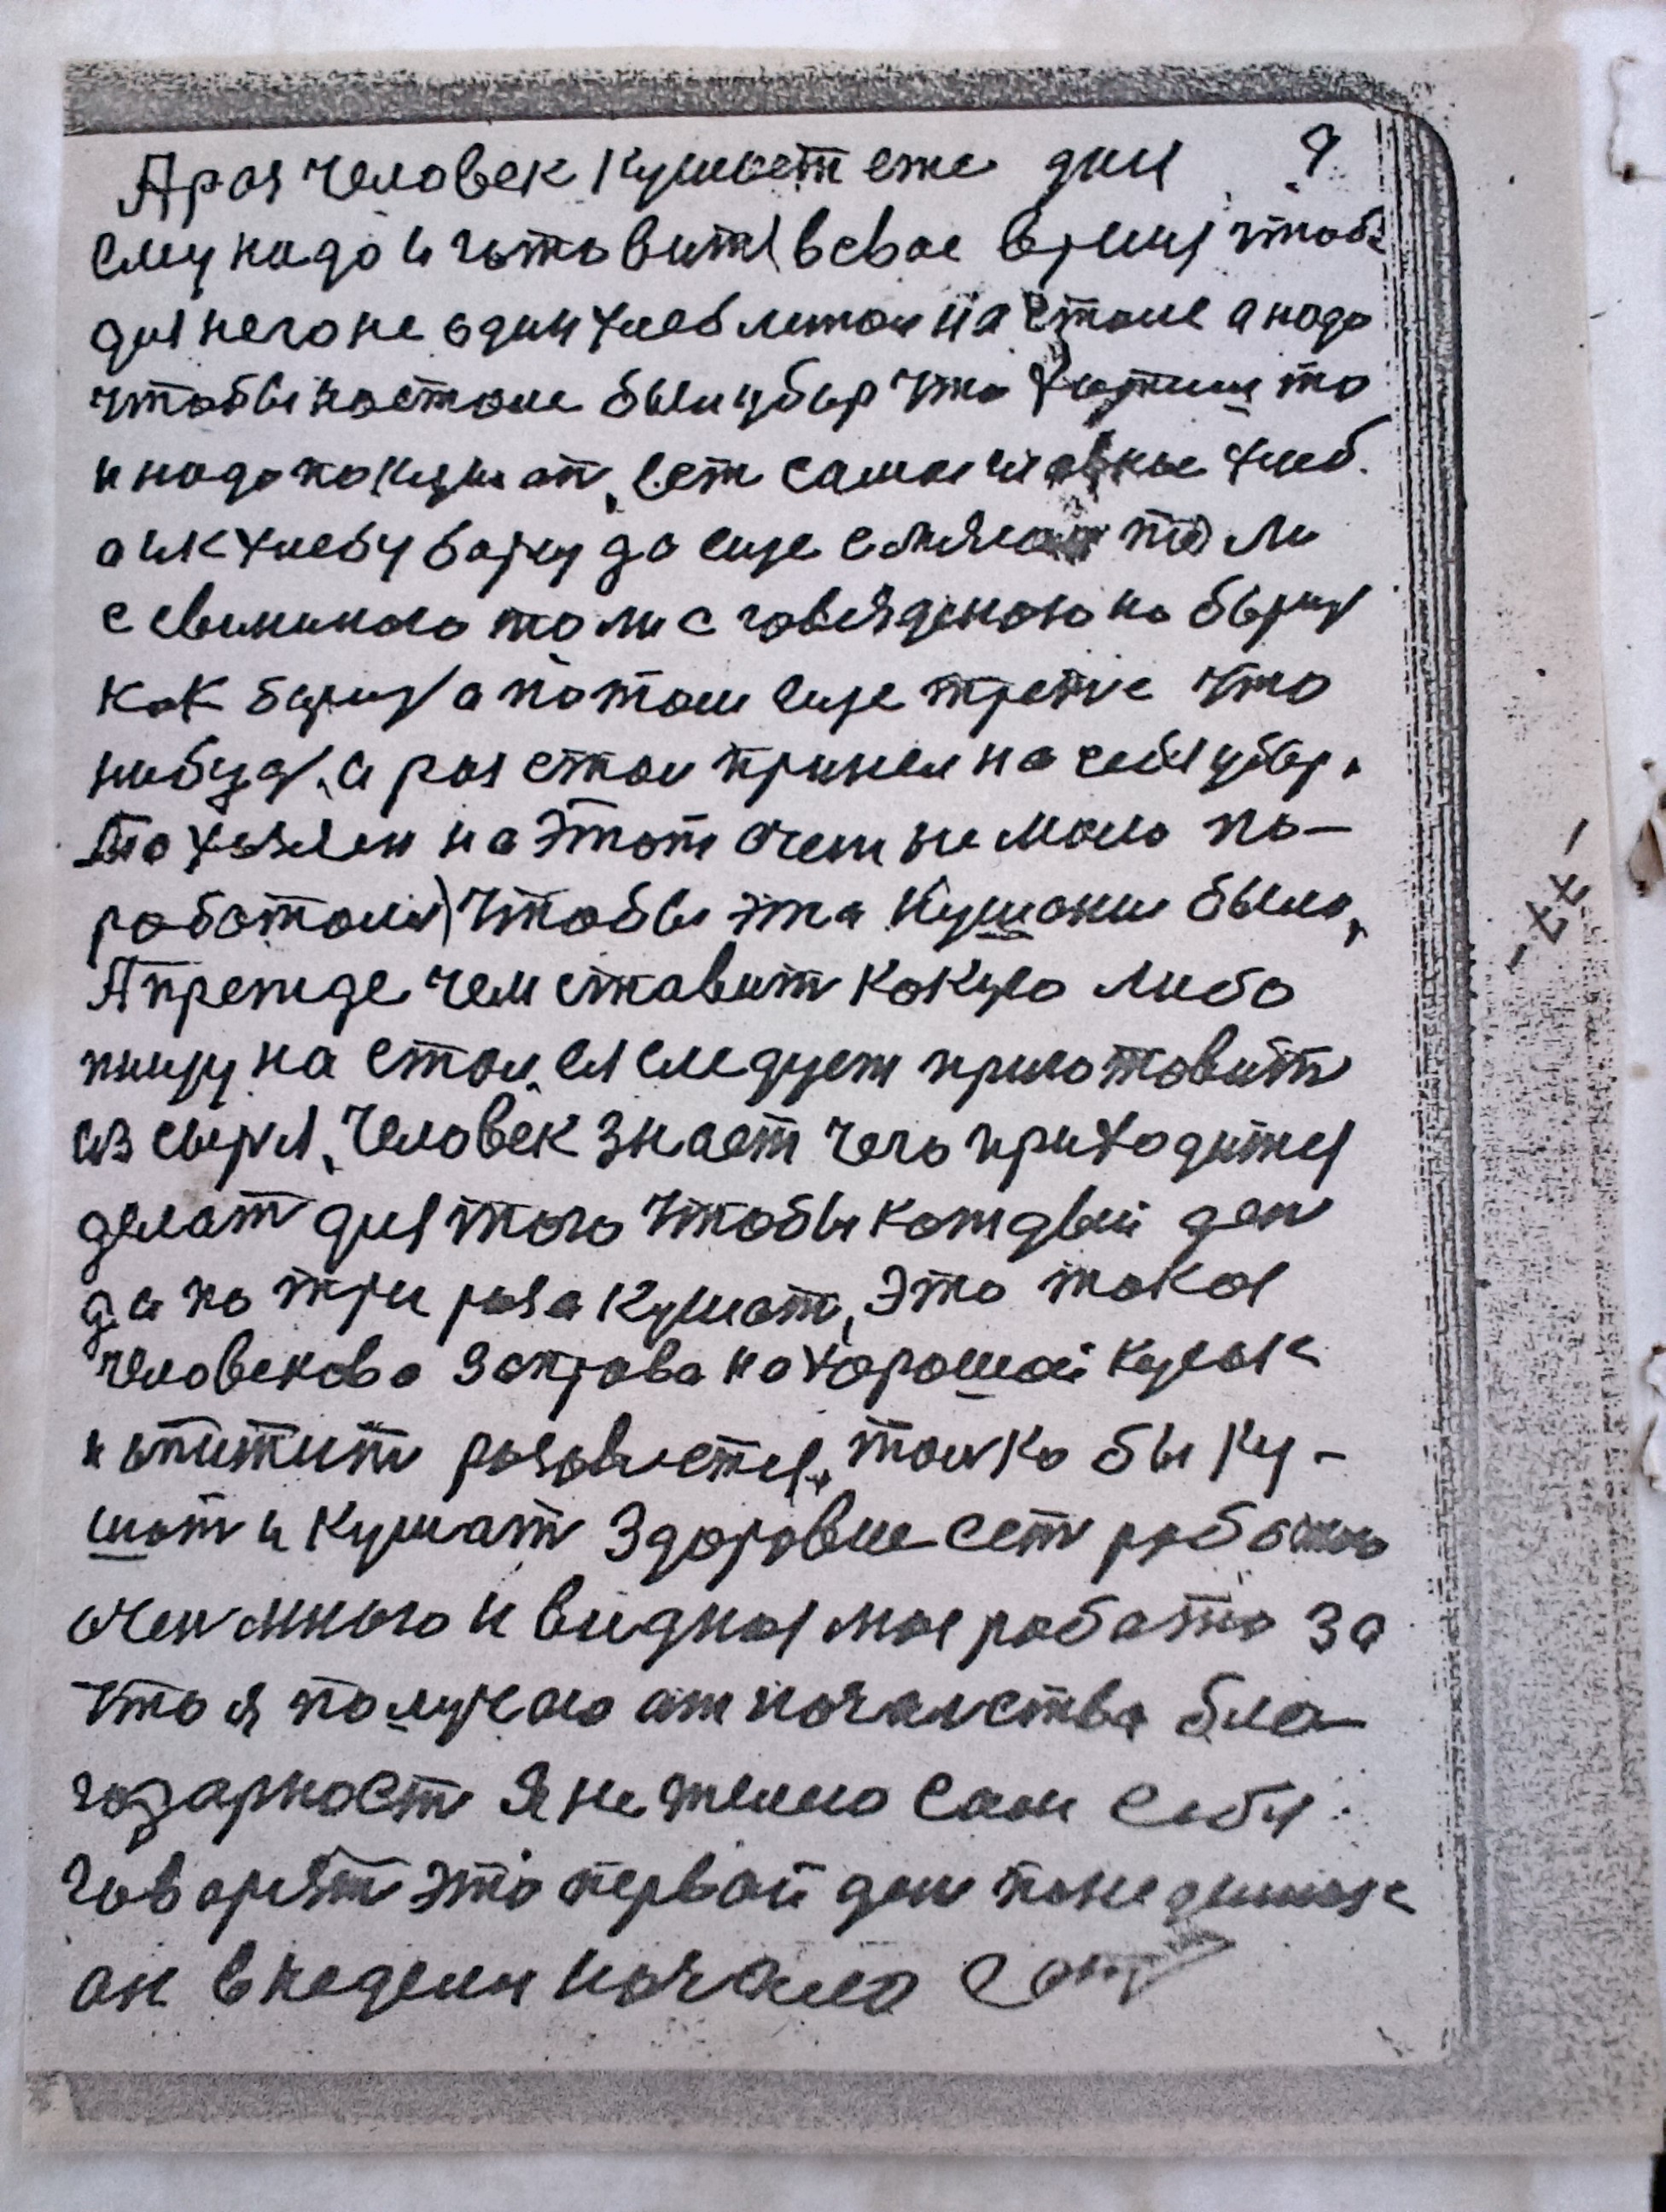 А раз человек кушает еже дня 9
ему надо и гатовить в свае время чтобы
для него не один хлеб лежал на столе а надо
чтобы на столе был убор что хатиш то
и надо покушать, ест самое главное хлеб.
а и к хлебу борщ да еще с мясом то ли
с свининаю то ли с говядиною но борщ
как борщ а потом еще третие что
нибудь, а раз стол принял на себя убор.
то хазяен на этот счет не мало по-
работал чтобы эта кушание было,
А прежде чем ставить какую либо
пищу на стол, ея следует приготовить
из сырья, человек знает чего приходится
делать для того чтобы каждый ден
да по три раза кушать, это такая
человекова заправа на хороший кусок
и апитит развився, только бы ку-
шать и кушать Здоровие есть работаю
очен много и видная моя работа за
что я получаю ат начальства бла-
годарность я не желаю сам себя
говорят это первай ден понеделник
ан в недели начало